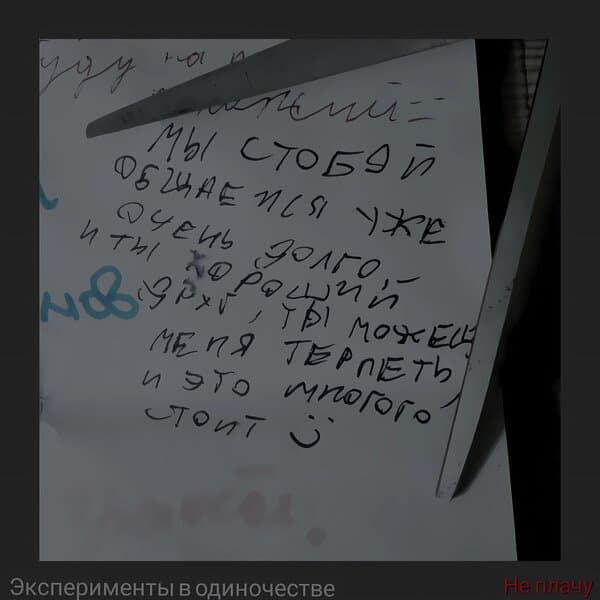 уду на п
МЫ СТОБОЙ
ОБЩАЕМСЯ УЖЕ
ОЧЕНЬ ДОЛГО,
И ТЫ ХОРОШИЙ
ДРУГ, ТЫ МОЖЕШ
МЕНЯ ТЕРПЕТЬ,
И ЭТО МНОГОГО
СТОИТ :)
нов
Эксперименты в одиночестве
Не плачу